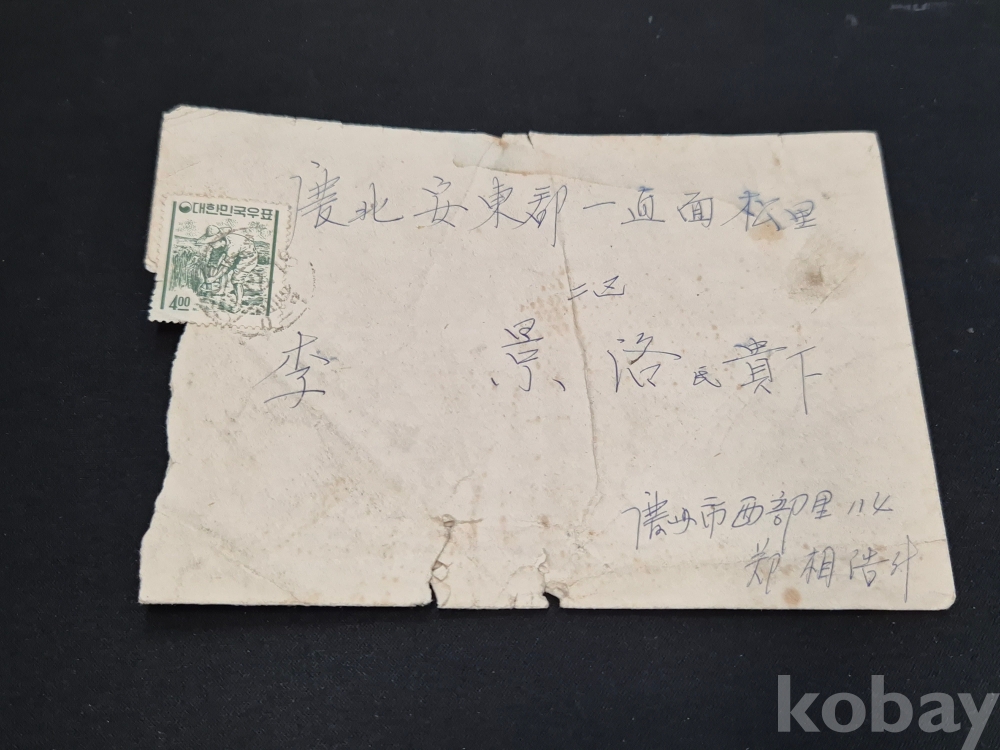 大한민국우표
4.00
慶北 安東郡 一直面 松里
二区
李 景 洛 氏 貴下
慶州市西部里 114
郑相浩
kobay